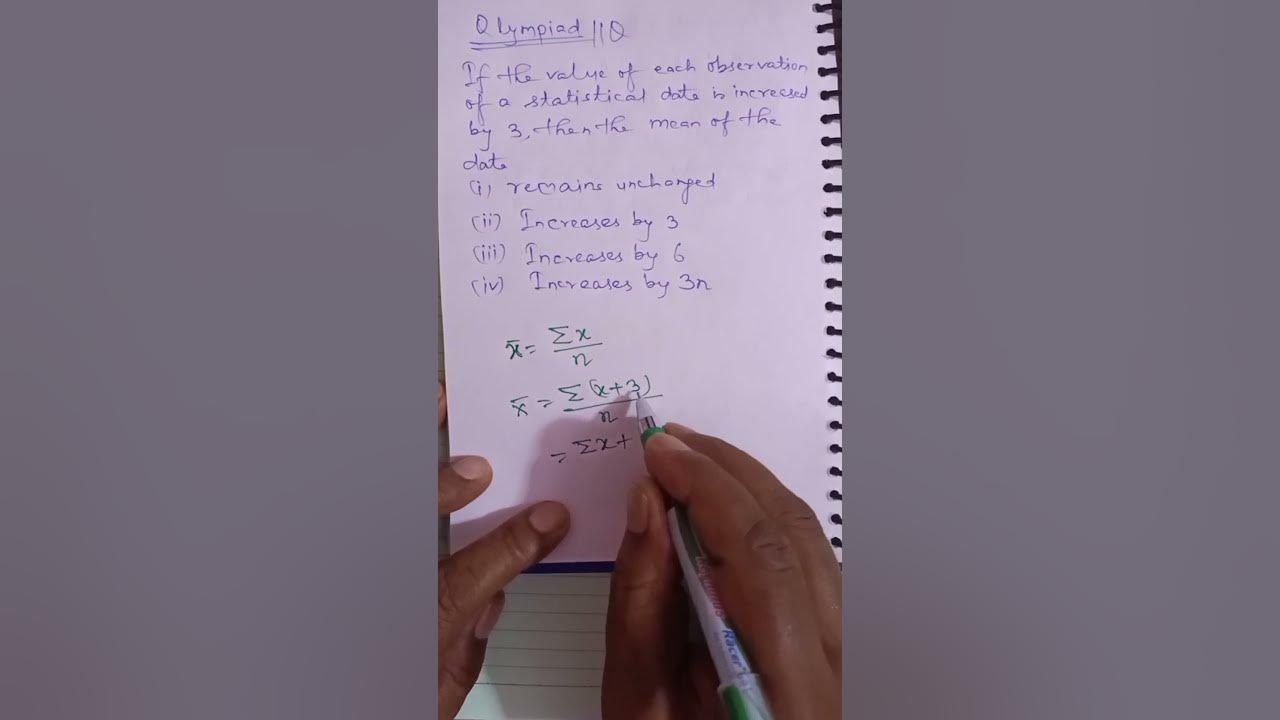 Olympiad || Q
If the value of each observation
of a statistical date is increased
by 3, then the mean of the
date
(i) remains unchanged
(ii) Increases by 3
(iii) Increases by 6
(iv) Increases by 3n
x̄ = Σx
n
x̄ = Σ(x+3)
n
= Σx+
Racer